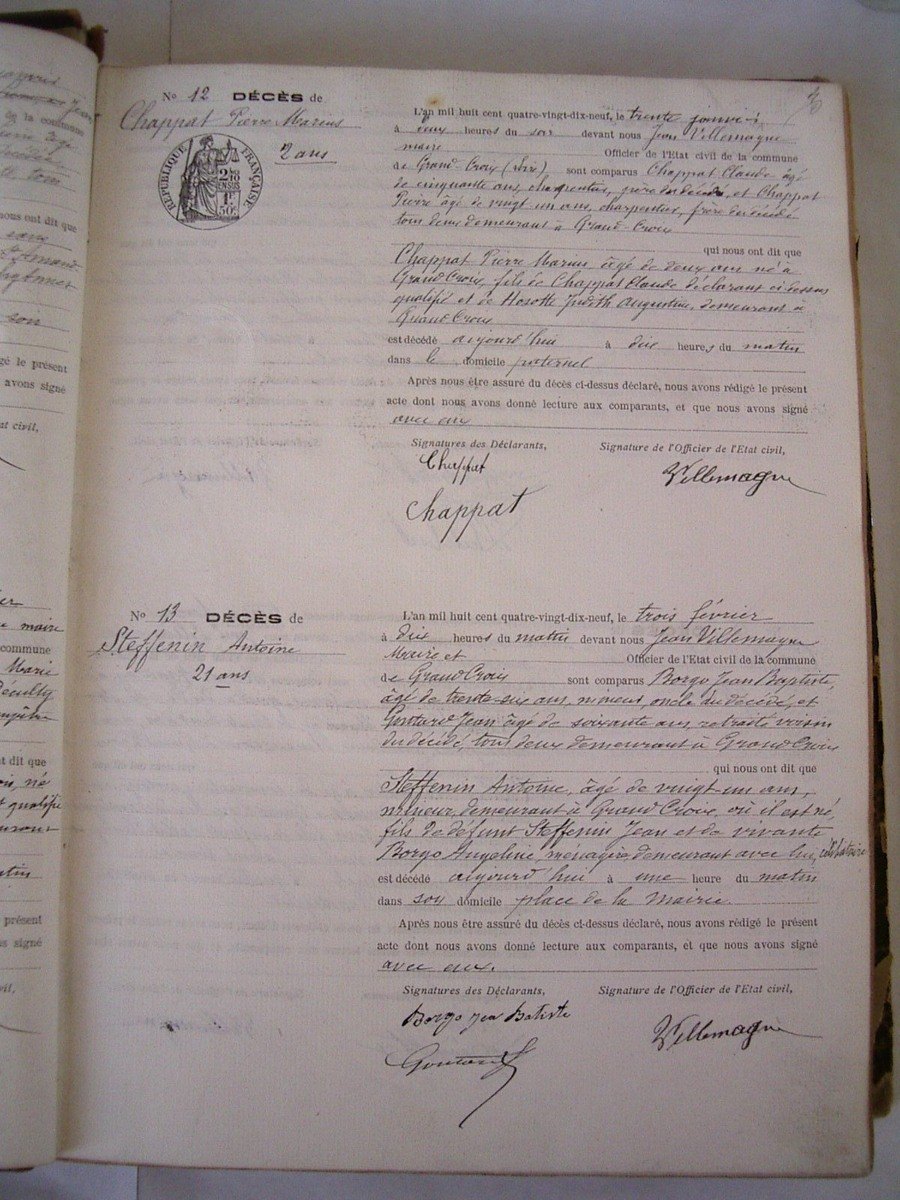 No 12 DÉCÈS de
Chappat Pierre Marius
2 ans
RÉPUBLIQUE FRANÇAISE
L'an mil huit cent quatre-vingt-dix-neuf, le trente janvier
à deux heures du soir devant nous Jean Villemagne
maire Officier de l'Etat civil de la commune
de Grand-Croix (Loire) sont comparus Chappat Claude âgé
de cinquante ans, charpentier, père du décédé, et Chappat
Pierre âgé de vingt un ans, charpentier, frère du décédé
tous deux demeurant à Grand-Croix
qui nous ont dit que
Chappat Pierre Marius, âgé de deux ans né à
Grand Croix, fils de Chappat Claude déclarant ci-dessus
qualifié et de Judith Augustine, demeurant à
Grand Croix
est décédé aujourd'hui à dix heures du matin
dans le domicile paternel
Après nous être assuré du décès ci-dessus déclaré, nous avons rédigé le présent
acte dont nous avons donné lecture aux comparants, et que nous avons signé
avec eux
Signatures des Déclarants, Signature de l'Officier de l'Etat civil,
Chappat Villemagne
Chappat
No 13 DÉCÈS de
Steffenin Antoine
21 ans
L'an mil huit cent quatre-vingt-dix-neuf, le trois février
à dix heures du matin devant nous Jean Villemagne
Maire et Officier de l'Etat civil de la commune
de Grand Croix sont comparus Borgo Jean Baptiste,
âgé de trente-six ans, mineur, oncle du décédé, et
Goutard Jean âgé de soixante ans, retraité voisin
du décédé, tous deux demeurant à Grand Croix
qui nous ont dit que
Steffenin Antoine, âgé de vingt un ans,
mineur, demeurant à Grand Croix, où il est né,
fils de défunt Steffenin Jean et de vivante
Borgo Angeline, ménagère demeurant avec lui, célibataire
est décédé aujourd'hui à une heure du matin
dans son domicile place de la Mairie.
Après nous être assuré du décès ci-dessus déclaré, nous avons rédigé le présent
acte dont nous avons donné lecture aux comparants, et que nous avons signé
avec eux.
Signatures des Déclarants, Signature de l'Officier de l'Etat civil,
Borgo Jean Batiste Villemagne
Goutard